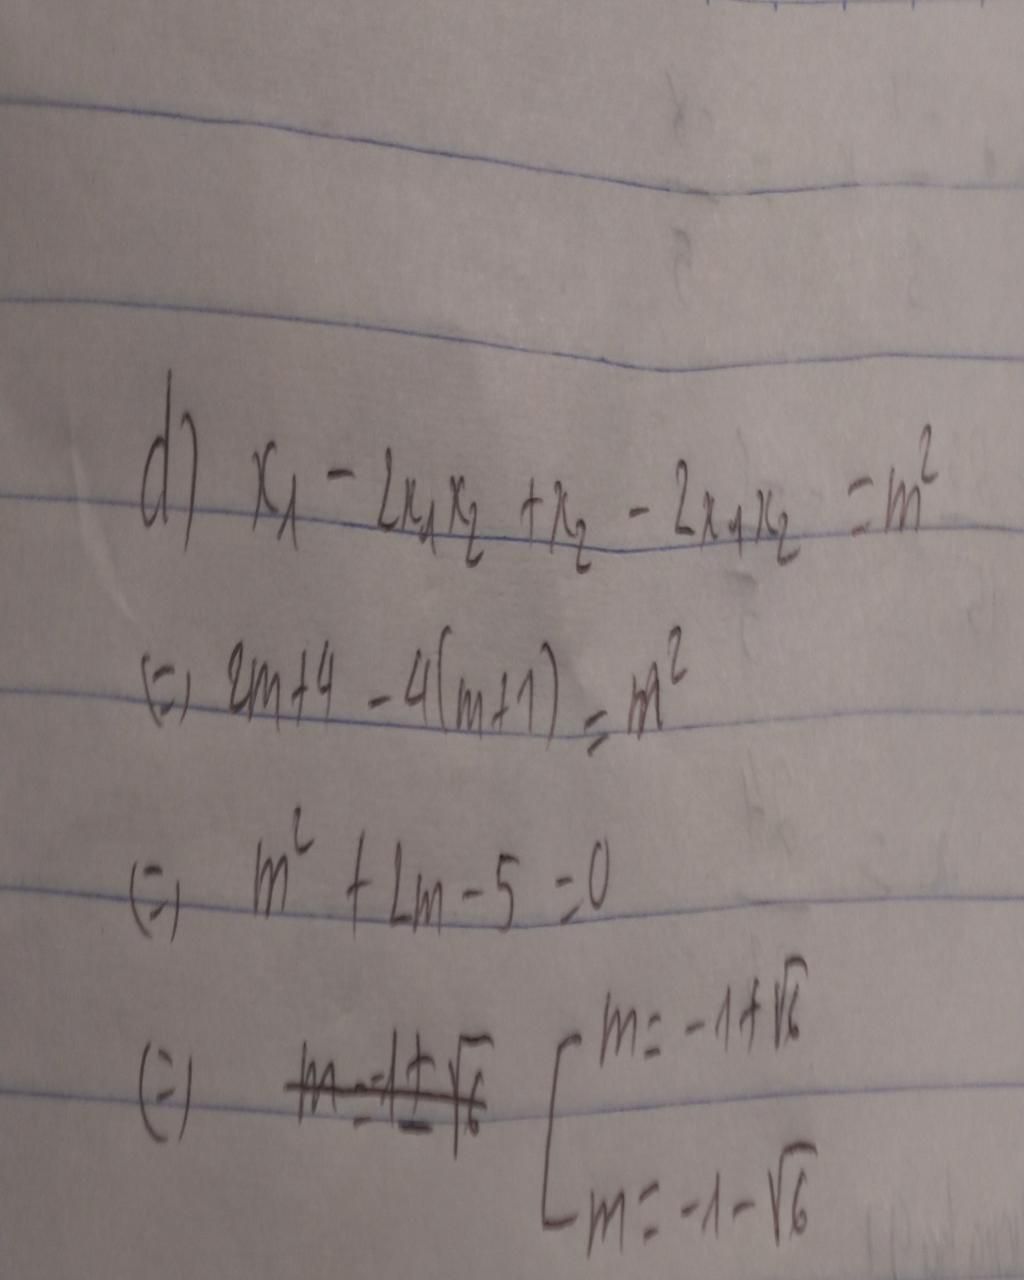 d) x₁ - 2x₁x₂ + x₂ - 2x₁x₂ = m²
(=) 2m+4 - 4(m+1) = m²
(=) m² + 2m - 5 = 0
(=) ~~m = -1 ± √6~~ [ m = -1 + √6
m = -1 - √6